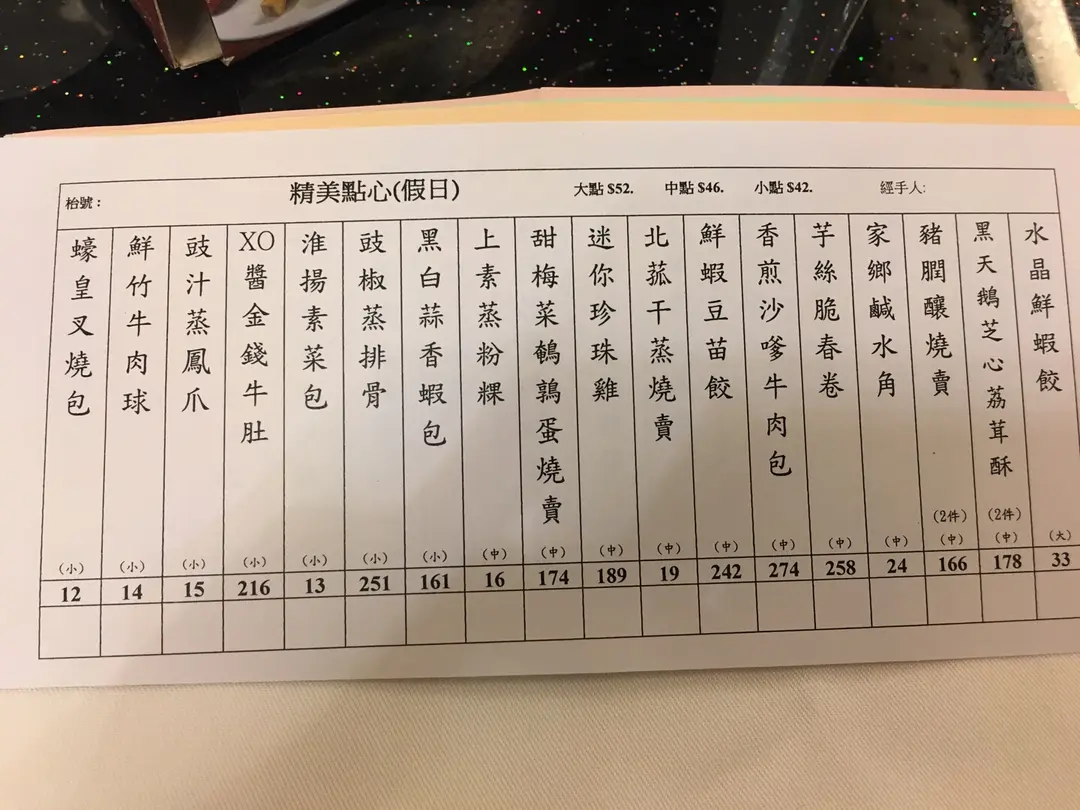 枱號：
精美點心(假日)
大點 $52. 中點 $46. 小點 $42.
經手人:
水晶鮮蝦餃
(大)
33
黑天鵝芝心荔茸酥
(2件)
(中)
178
豬膶釀燒賣
(2件)
(中)
166
家鄉鹹水角
(中)
24
芋絲脆春卷
(中)
258
香煎沙嗲牛肉包
(中)
274
鮮蝦豆苗餃
(中)
242
北菰干蒸燒賣
(中)
19
迷你珍珠雞
(中)
189
甜梅菜鵪鶉蛋燒賣
(中)
174
上素蒸粉粿
(中)
16
黑白蒜香蝦包
(小)
161
豉椒蒸排骨
(小)
251
淮揚素菜包
(小)
13
XO醬金錢牛肚
(小)
216
豉汁蒸鳳爪
(小)
15
鮮竹牛肉球
(小)
14
蠔皇叉燒包
(小)
12